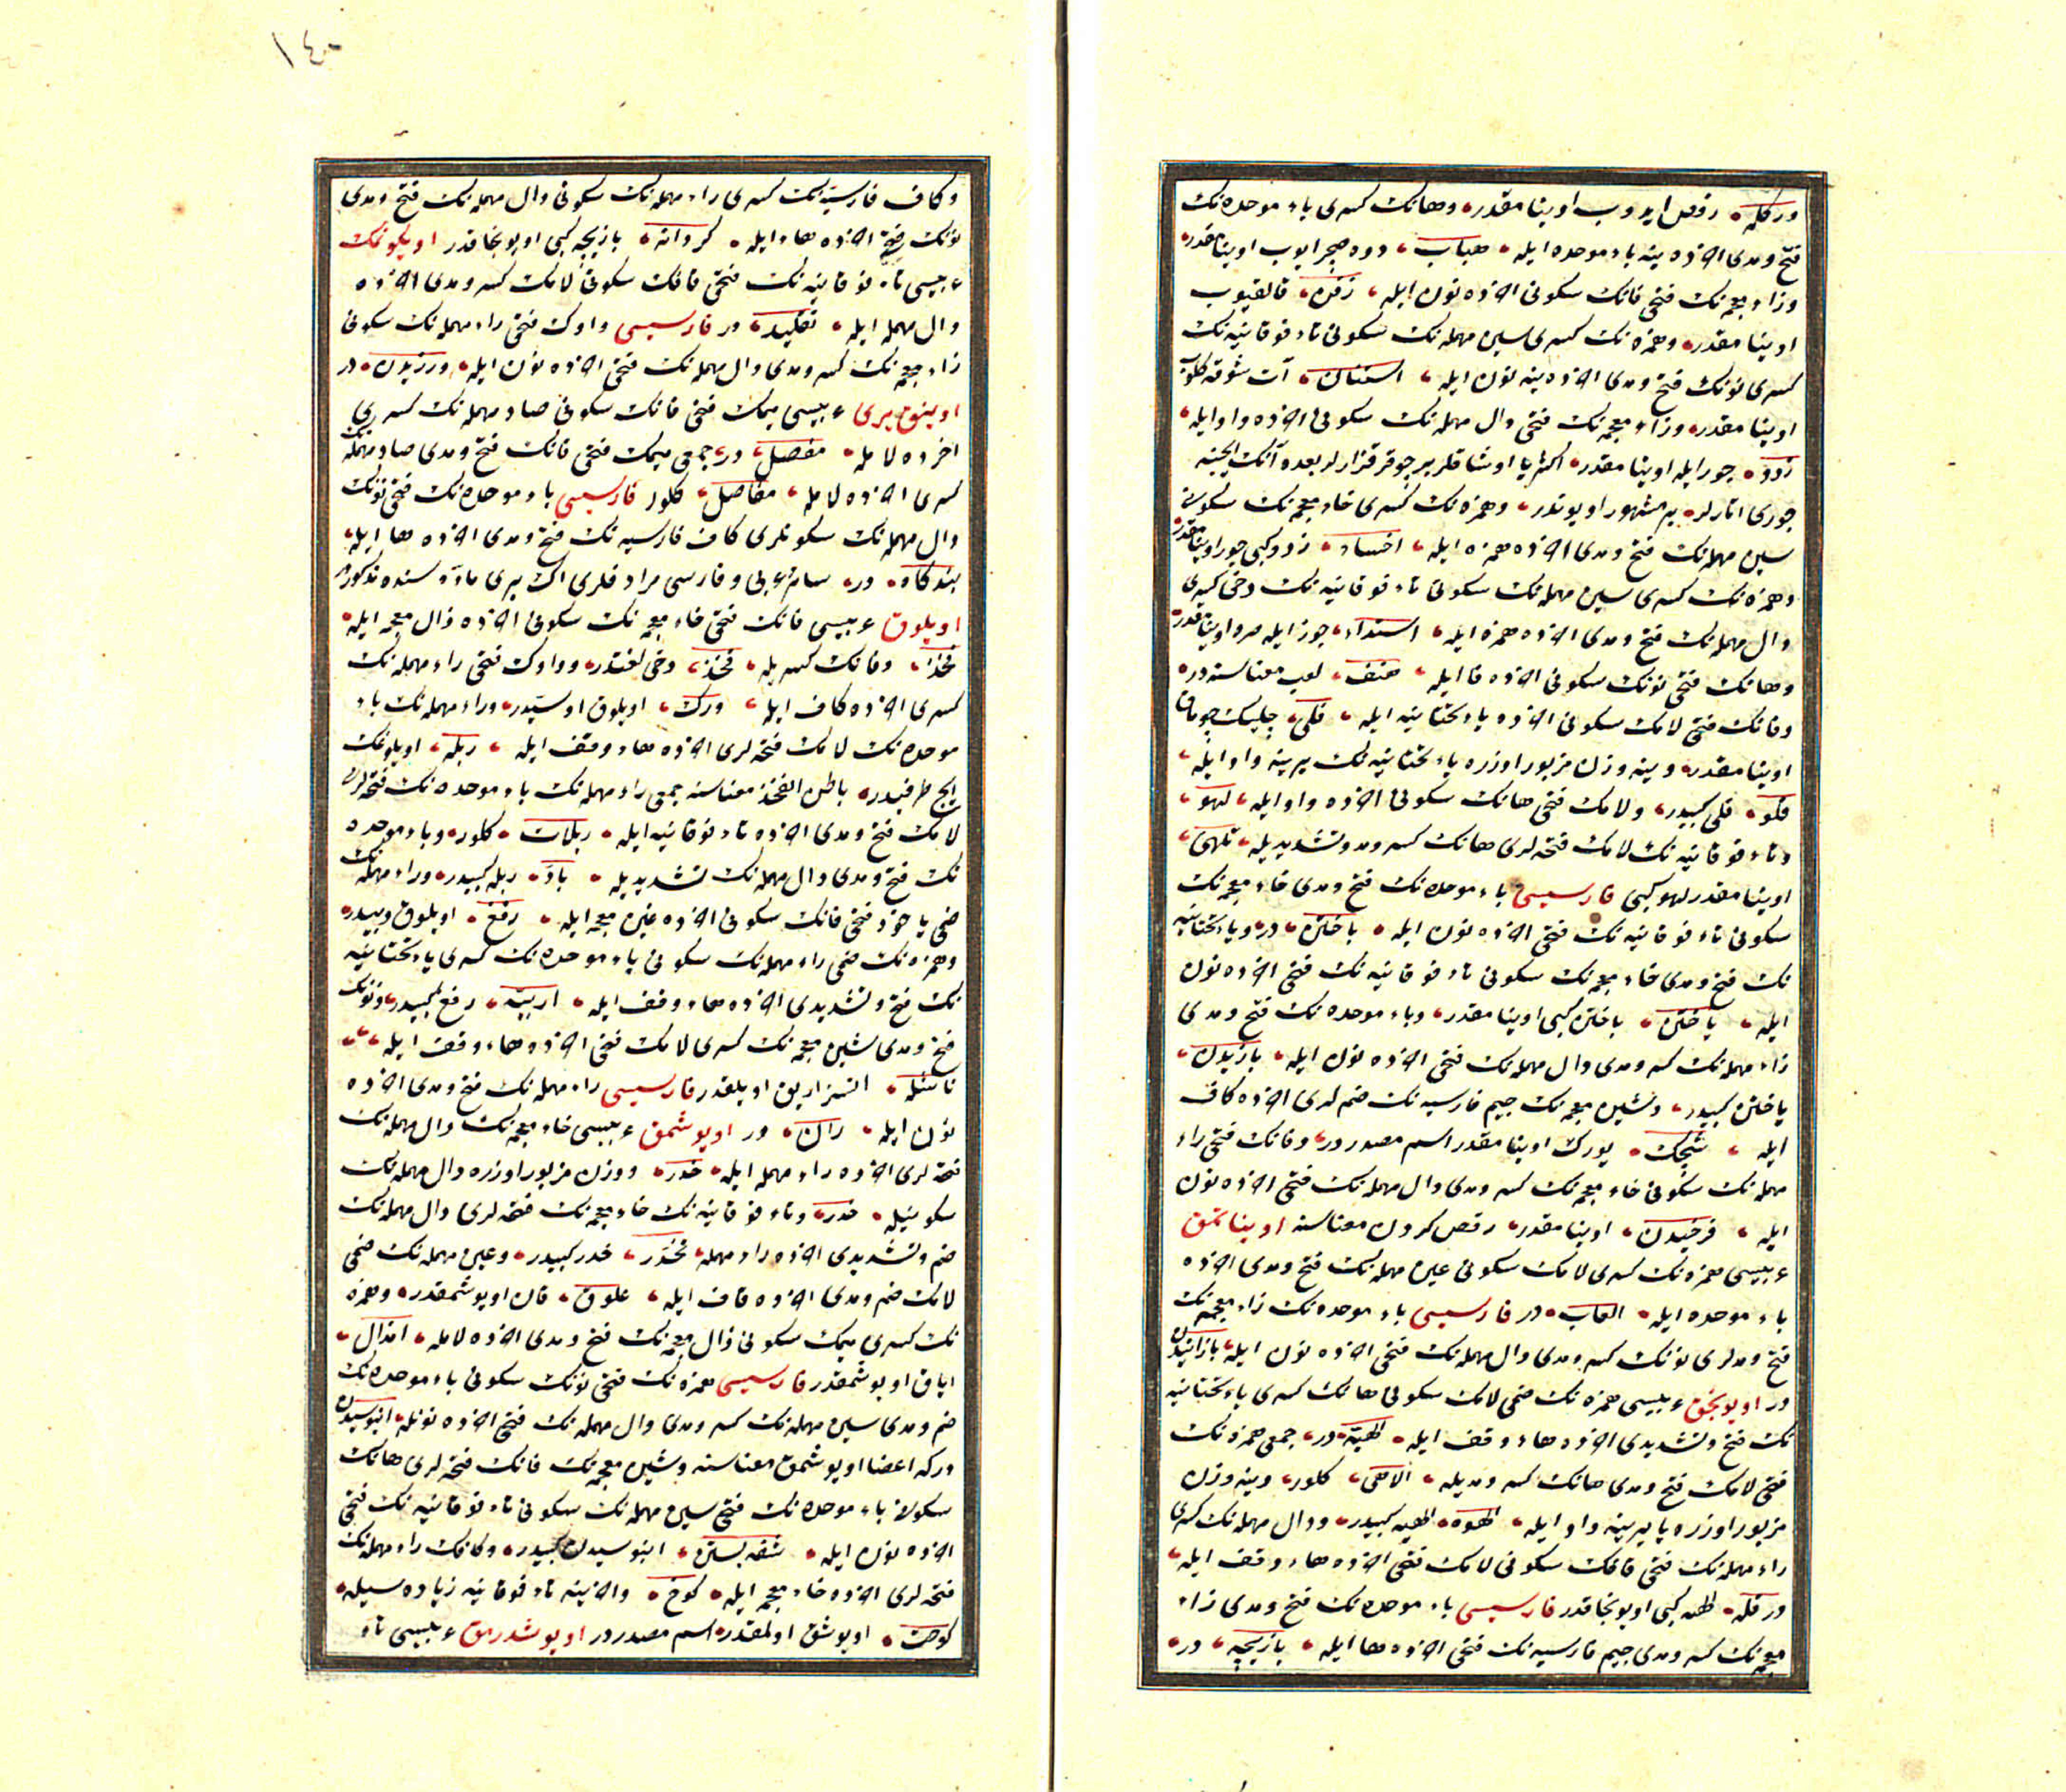 درقله رقص ایدوب اوینامقدر وهانك كسری باء موحده نك
فتح ومدی اخرده ینه باء موحده ایله هباب دوه صچرایوب اوینامقدر
وزاء معجمه نك فتحی فانك سكونی اخرده نون ایله زفن قالقیوب
اوینامقدر وهمزه نك كسری سین مهمله نك سكونی تاء فوقانیه نك
كسری نونك فتح ومدی اخرده ینه نون ایله استنان آت شوقه كلوب
اوینامقدر وزاء معجمه نك فتحی دال مهمله نك سكونی اخرده واو ایله
زدو جوز ایله اوینامقدر اكثریا اوشاقلر بر چوقر قزارلر بعده آنك ایچنه
جوزی اتارلر بر مشهور اویوندر وهمزه نك كسری خاء معجمه نك سكونی
سین مهمله نك فتح ومدی اخرده همزه ایله اخساء زدو كبی جوز اوینامقدر
وهمزه نك كسری سین مهمله نك سكونی تاء فوقانیه نك دخی كسری
دال مهمله نك فتح ومدی اخرده همزه ایله استداء جوز ایله اوینامقدر
وهانك فتحی نونك سكونی اخرده فا ایله هنف لعب معناسنه در
وفانك فتحی لامك سكونی اخرده یاء تحتانیه ایله فلی چلیك چوماق
اوینامقدر وینه وزن مزبور اوزره یاء تحتانیه نك یرینه واو ایله
فلو فلی كبیدر ولامك فتحی هانك سكونی اخرده واو ایله لهو
وتاء فوقانیه نك لامك فتحه لری هانك كسر ومد وتشدیدیله تلهی
اوینامقدر لهو كبی فارسیسی باء موحده نك فتح ومدی خاء معجمه نك
سكونی تاء فوقانیه نك فتحی اخرده نون ایله باختن در ویاء تحتانیه
نك فتح ومدی خاء معجمه نك سكونی تاء فوقانیه نك فتحی اخرده نون
ایله یاختن باختن كبی اوینامقدر وباء موحده نك فتح ومدی
زاء مهمله نك كسر ومدی دال مهمله نك فتحی اخرده نون ایله بازیدن
یاختن كبیدر وشین معجمه نك جیم فارسیه نك ضم لری اخرده كاف
ایله شچك یورك اوینامقدر اسم مصدر در وفانك فتحی راء
مهمله نك سكونی خاء معجمه نك كسر ومدی دال مهمله نك فتحی اخرده نون
ایله فرخیدن اوینامقدر رقص كردن معناسنه اویناتمق
عربیسی همزه نك كسری لامك سكونی عین مهمله نك فتح ومدی اخرده
باء موحده ایله العاب در فارسیسی باء موحده نك زاء معجمه نك
فتح ومدلری نونك كسر ومدی دال مهمله نك فتحی اخرده نون ایله بازانیدن
در اویونجق عربیسی همزه نك ضمی لامك سكونی هانك كسری یاء تحتانیه
نك فتح وتشدیدی اخرده هاء وقف ایله الهیه در جمعی همزه نك
فتحی لامك فتح ومدی هانك كسر ومدیله الاهی كلور وینه وزن
مزبور اوزره یا یرینه واو ایله الهوه الهیه كبیدر ودال مهمله نك كسری
راء مهمله نك فتحی قافك سكونی لامك فتحی اخرده هاء وقف ایله
درقله الهیه كبی اویونجاقدر فارسیسی باء موحده نك فتح ومدی زاء
معجمه نك كسر ومدی جیم فارسیه نك فتحی اخرده ها ایله بازیچه در
١٤٠
وكاف فارسیه نك كسری راء مهمله نك سكونی دال مهمله نك فتح ومدی
نونك فتحی اخرده هاء ایله كردانه بازیچه كبی اویونجاقدر اویكونمك
عربیسی تاء فوقانیه نك فتحی قافك سكونی لامك كسر ومدی اخرده
دال مهمله ایله تقلید در فارسیسی واوك فتحی راء مهمله نك سكونی
زاء معجمه نك كسر ومدی دال مهمله نك فتحی اخرده نون ایله ورزیدن در
اوینق یری عربیسی میمك فتحی فانك سكونی صاد مهمله نك كسری
اخرده لامله مفصل در جمعی میمك فتحی فانك فتح ومدی صاد مهمله نك
كسری اخرده لامله مفاصل كلور فارسیسی باء موحده نك فتحی نونك
دال مهمله نك سكونلری كاف فارسیه نك فتح ومدی اخرده ها ایله
بندكاه در سائر عربی وفارسی مرادفلری اك یری ماده سنده مذكوردر
اویلوق عربیسی فانك فتحی خاء معجمه نك سكونی اخرده ذال معجمه ایله
فخذ وفانك كسریله فخذ دخی لغتدر وواوك فتحی راء مهمله نك
كسری اخرده كاف ایله ورك اویلوق اوستیدر وراء مهمله نك باء
موحده نك لامك فتحه لری اخرده هاء وقف ایله ربله اویلوغك
ایچ طرفیدر باطن الفخذ معناسنه جمعی راء مهمله نك باء موحده نك فتحه لری
لامك فتح ومدی اخرده تاء فوقانیه ایله ربلات كلور وباء موحده
نك فتح ومدی دال مهمله نك تشدیدیله باد ربله كبیدر وراء مهمله نك
ضمی یاخود فتحی فانك سكونی اخرده غین معجمه ایله رفغ اویلوق دیبیدر
وهمزه نك ضمی راء مهمله نك سكونی باء موحده نك كسری یاء تحتانیه
نك فتح وتشدیدی اخرده هاء وقف ایله اربیه رفغ كبیدر ونونك
فتح ومدی شین معجمه نك كسری لامك فتحی اخرده هاء وقف ایله
ناشله اتسز اریق اویلقدر فارسیسی راء مهمله نك فتح ومدی اخرده
نون ایله ران در اویوشمق عربیسی خاء معجمه نك دال مهمله نك
فتحه لری اخرده راء مهمله ایله خدر ووزن مزبور اوزره دال مهمله نك
سكونیله خدر وتاء فوقانیه نك خاء معجمه نك فتحه لری دال مهمله نك
ضم وتشدیدی اخرده راء مهمله تخدر خدر كبیدر وعین مهمله نك ضمی
لامك ضم ومدی اخرده قاف ایله علوق قان اویوشمقدر وهمزه
نك كسری میمك سكونی ذال معجمه نك فتح ومدی اخرده لامله امذال
ایاق اویوشمقدر فارسیسی همزه نك فتحی نونك سكونی باء موحده نك
ضم ومدی سین مهمله نك كسر ومدی دال مهمله نك فتحی اخرده نونله انبوسیدن
دركه اعضا اویوشمق معناسنه وشین معجمه نك فانك فتحه لری هانك
سكونی باء موحده نك فتحی سین مهمله نك سكونی تاء فوقانیه نك فتحی
اخرده نون ایله شفه بستن انبوسیدن كبیدر وكافك راء مهمله نك
فتحه لری اخرده خاء معجمه ایله كرخ واخرینه تاء فوقانیه زیاده سیله
كرخت اویوشق اولمقدر اسم مصدر در اویوشدرمق عربیسی تاء